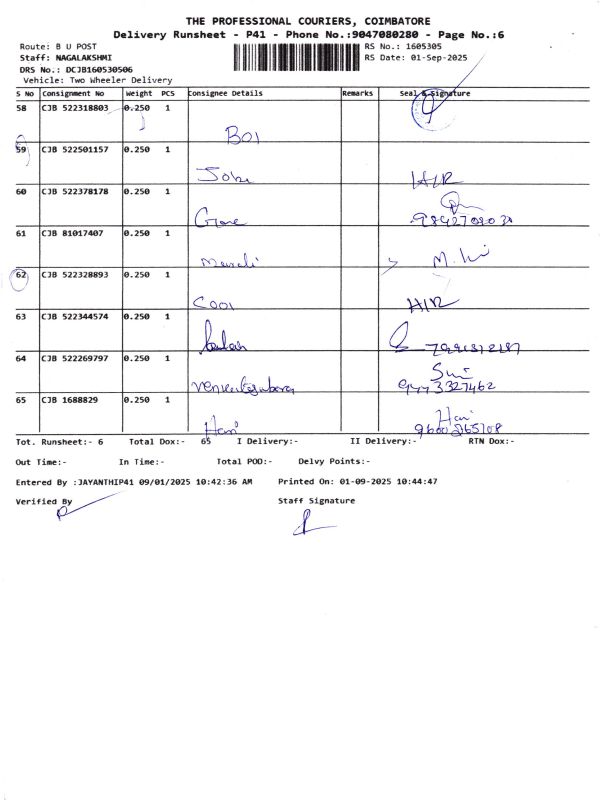 THE PROFESSIONAL COURIERS, COIMBATORE
Delivery Runsheet - P41 - Phone No.:9047080280 - Page No.:6
Route: B U POST RS No.: 1605305
Staff: NAGALAKSHMI RS Date: 01-Sep-2025
DRS No.: DCJB160530506
Vehicle: Two Wheeler Delivery
S No Consignment No Weight PCS Consignee Details Remarks Seal & Signature
58 CJB 522318803 0.250 1
BOI
59 CJB 522501157 0.250 1
H/R
60 CJB 522378178 0.250 1
61 CJB 81017407 0.250 1
62 CJB 522328893 0.250 1
H/R
63 CJB 522344574 0.250 1
64 CJB 522269797 0.250 1
65 CJB 1688829 0.250 1
Hari Hari
Tot. Runsheet:- 6 Total Dox:- 65 I Delivery:- II Delivery:- RTN Dox:-
Out Time:- In Time:- Total POD:- Delvy Points:-
Entered By :JAYANTHIP41 09/01/2025 10:42:36 AM Printed On: 01-09-2025 10:44:47
Verified By Staff Signature